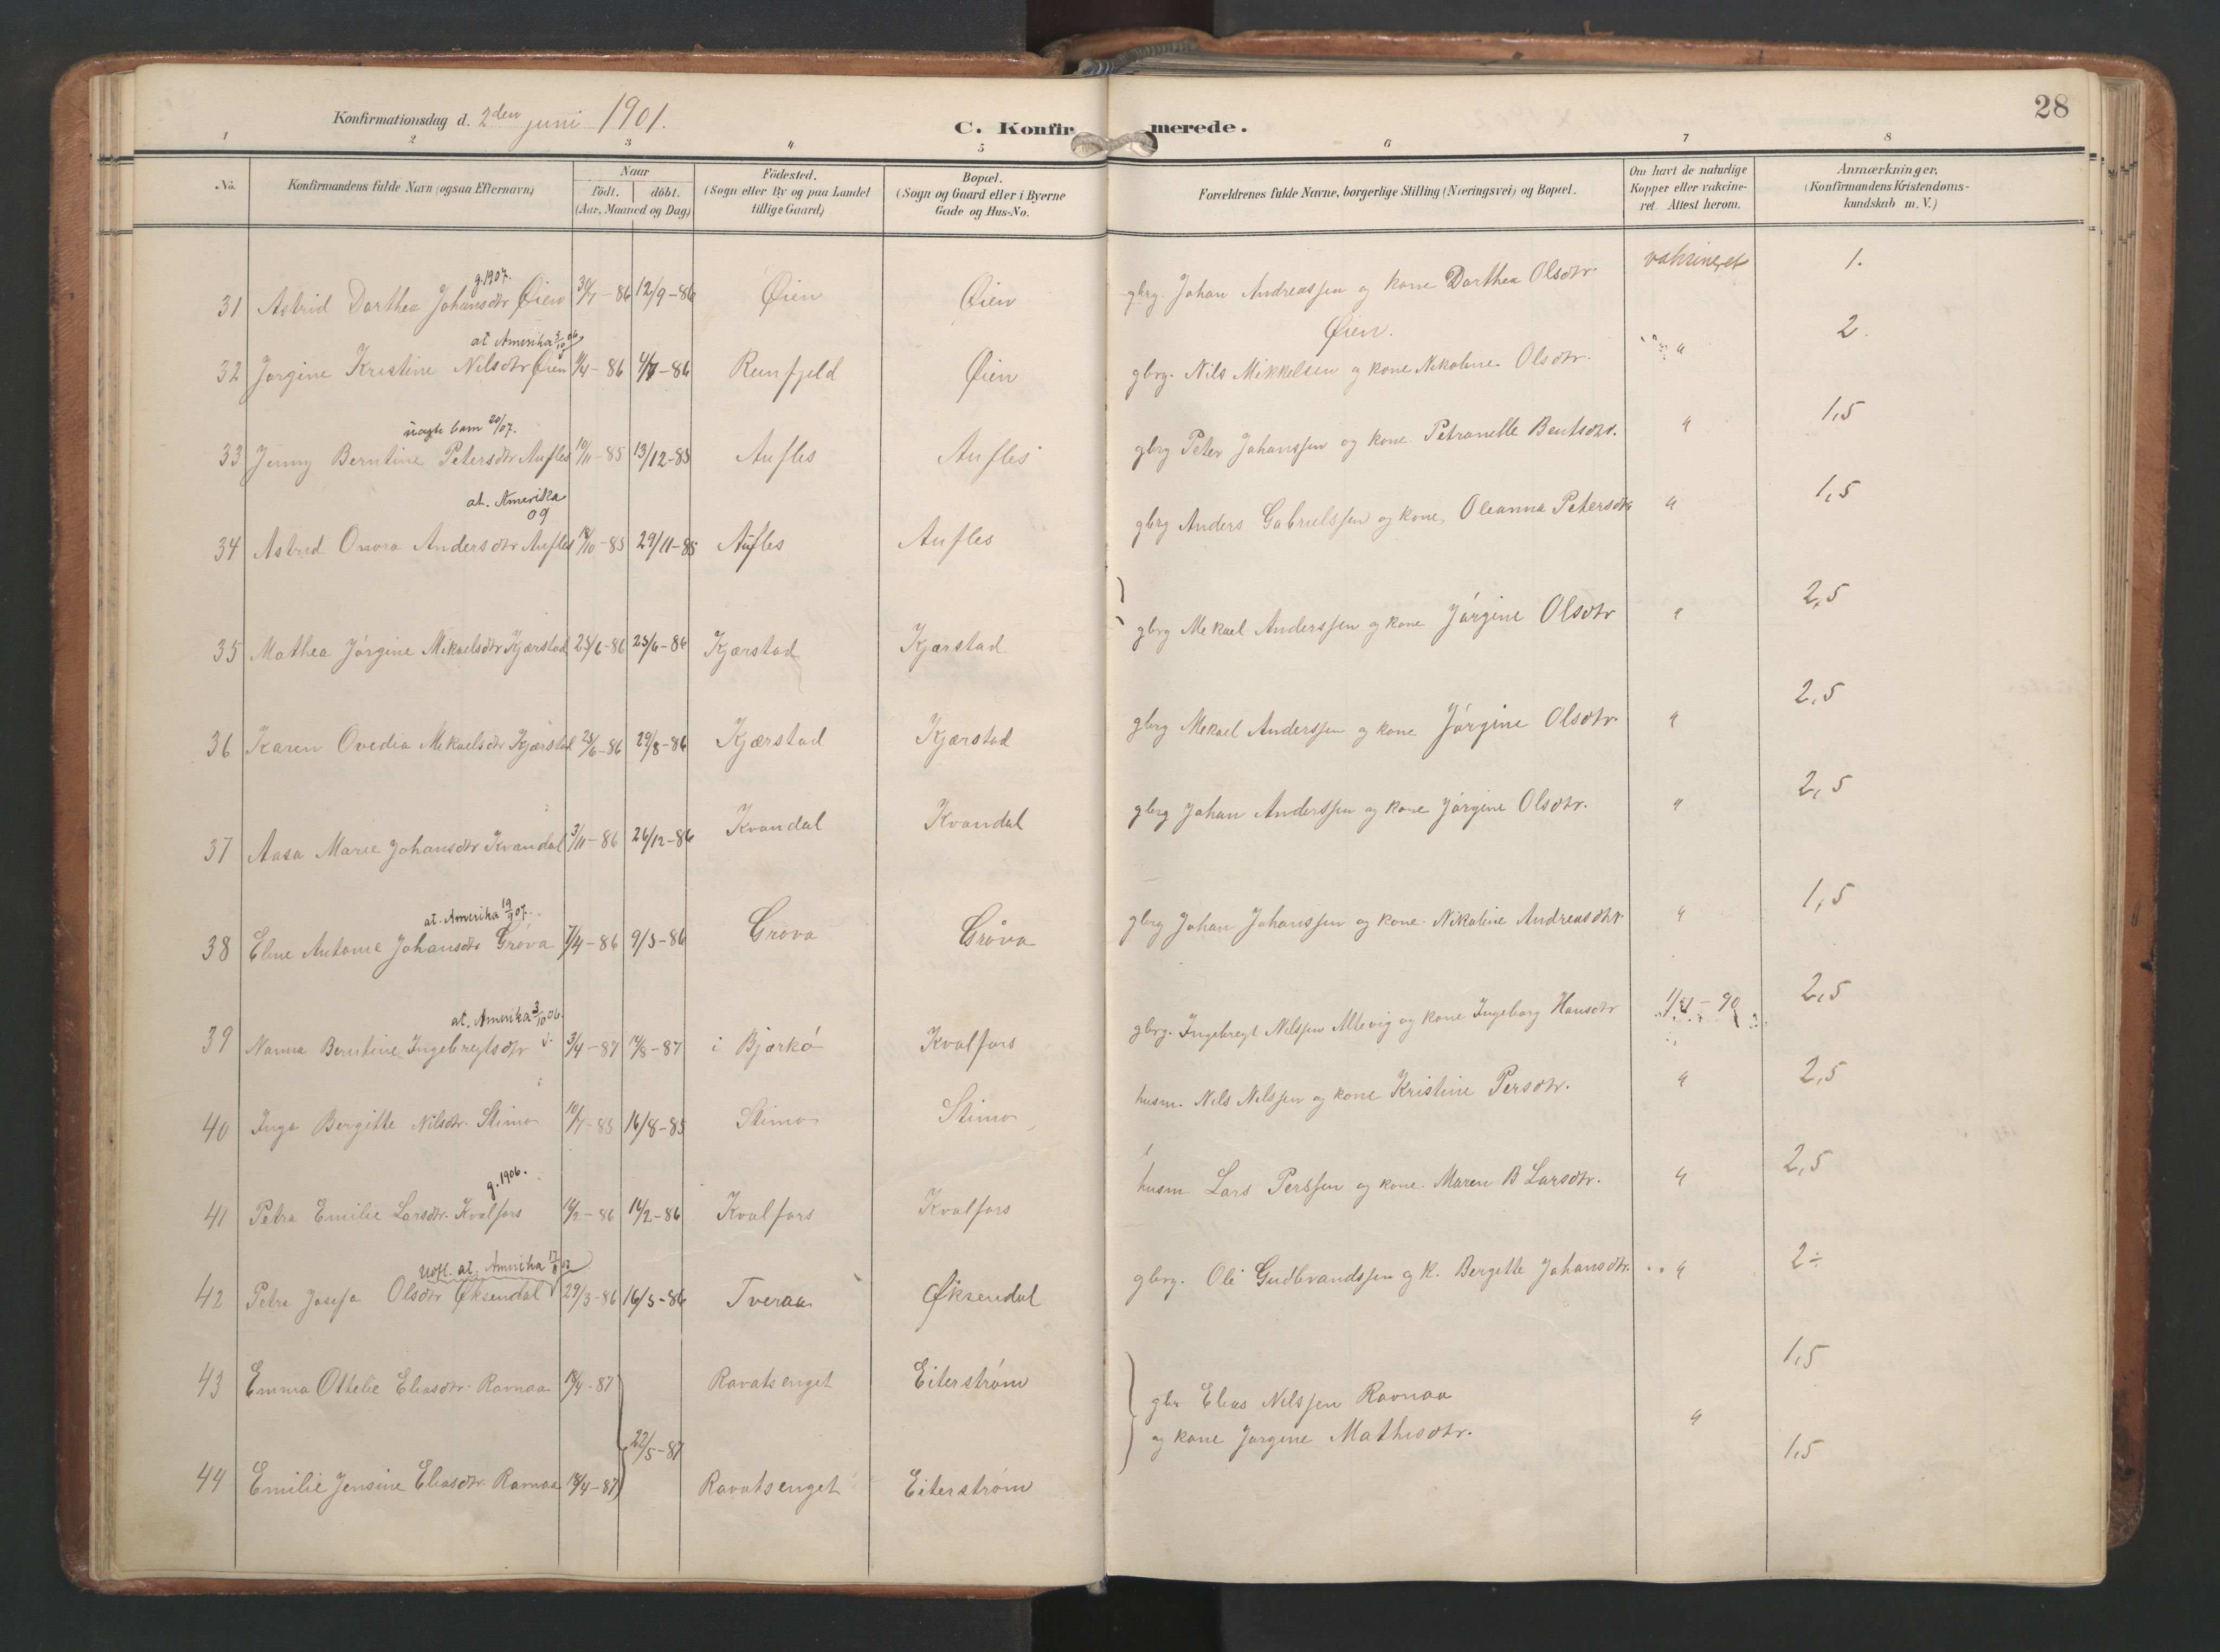 28
Konfirmationsdag d. 2den juni 1901.
C. Konfirmerede.
1 2 3 4 5 6 7 8
No. Konfirmandens fulde Navn (ogsaa Efternavn) Naar födt. döbt. (Aar, Maaned og Dag) Födested. (Sogn eller By og paa Landet tillige Gaard) Bopæl. (Sogn og Gaard eller i Byerne Gade og Hus-No. Forældrenes fulde Navne, borgerlige Stilling (Næringsvei) og Bopæl. Om havt de naturlige Kopper eller vakcineret. Attest herom. Anmærkninger. (Konfirmandens Kristendomskundskab m. V.)
g. 1907.
31 Astrid Dorthea Johansdtr Øien 30/7-86 12/9-86 Øien Øien gbrg. Johan Andreassen og kone Dorthea Olsdtr. vaksineret 1.
Øien.
at Amerika 3/10 06
32 Jørgine Kristine Nilsdtr Øien /4-86 4/7-86 Reinfjeld Øien gbrg. Nils Mikkelsen og kone Nikoline Olsdtr. " 2.
uægte barn 20/07.
33 Jenny Berntine Petersdtr Aufles 10/11-85 13/12-85 Aufles Aufles gbrg Peter Johanssen og kone Petranelle Bentsdtr. " 1,5
at. Amerika
09
34 Astrid Onora Andersdtr Aufles 18/10-85 29/11-85 Aufles Aufles gbrg Anders Gabrielssen og kone Oleanna Petersdtr " 1,5
35 Mathea Jørgine Mikaelsdtr Kjærstad 23/6-86 25/6-86 Kjærstad Kjærstad gbrg Mekael Anderssen og kone Jørgine Olsdtr " 2,5
36 Karen Ovedia Mikaelsdtr Kjærstad 23/6-86 29/8-86 Kjærstad Kjærstad gbrg Mekael Anderssen og kone Jørgine Olsdtr. " 2,5
37 Aasa Marie Johansdtr Kvandal 3/11-86 26/12-86 Kvandal Kvandal gbrg Johan Anderssen og kone Jørgine Olsdtr. " 2,5
at. Amerika 19/9 07.
38 Eline Antonie Johansdtr Grøva 7/4-86 9/5-86 Grøva Grøva gbrg Johan Johanssen og kone Nikoline Andreasdtr. " 1,5
at. Amerika 3/10 06.
39 Nanna Berntine Ingebregtsdtr 3/4-87 14/8-87 i Bjarkø Kvalfors gbrg. Ingebregt Nilssen Altevig og kone Ingeborg Hansdtr -90 2,5
40 Inga Bergitte Nilsdtr. Stimo 10/7-85 16/8-85 Stimo Stimo husm. Nils Nilssen og kone Kristine Persdtr. " 2,5
g. 1906.
41 Petra Emilie Larsdtr. Kvalfors /2-86 14/2-86 Kvalfors Kvalfors husm. Lars Perssen og kone. Maren B Larsdtr. " 2,5
Udfl. at. Amerika 17/8
42 Petra Josefa Olsdtr Øksendal 29/3-86 16/5-86 Tveraa Øksendal gbrg. Ole Gudbrandssen og k. Bergitte Johansdtr. " 2÷
43 Emma Othelie Eliasdtr. Ravnaa 18/4-87 Ravatsenget Eiterstrøm gbr Elias Nilssen Ravnaa 1,5
22/5-87 og kone Jørgine Mathisdtr. "
44 Emilie Jensine Eliasdtr. Ravnaa 18/4-87 Ravatsenget Eiterstrøm 1,5